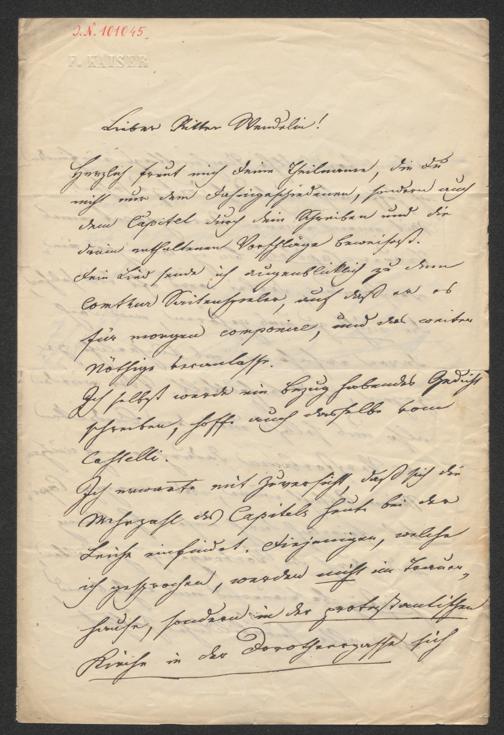 J.N. 101045
F. KAISER
Lieber Ritter Wendelin!
Herzlich freut mich deine Theilname, die du
nicht nur dem Dahingeschiedenen, sondern auch
dem Capitel durch dein Schreiben und die
darin enthaltenen Vorschläge beweisest.
Dein Lied sende ich augenblicklich zu dem
Comthur Saitenspieler, auf daß er es
für morgen componire, und das weiter
Nöthige veranlasse.
Ich selbst werde ein Bezug habendes Gedicht
schreiben, hoffe auch dasselbe vom
Castelli.
Ich erwarte mit Zuversicht, daß sich die
Mehrzahl des Capitels heute bei der
Leiche einfindet. Diejenigen, welche
ich gesprochen, werden nicht im Trauer-
hause, sondern in der protestantischen
Kirche in der Dorotheergasse sich